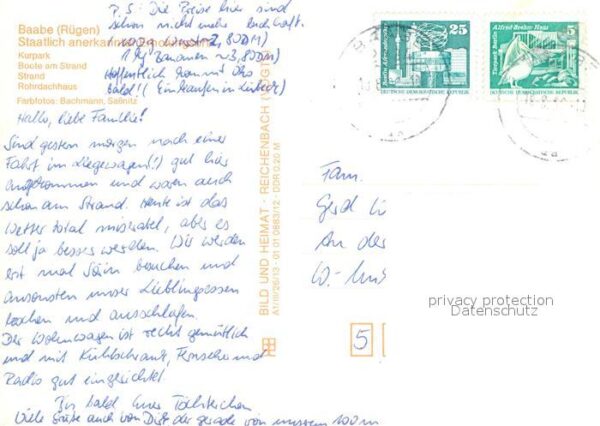 P.S. Die Preise hier sind
schon nicht mehr
100g Wurst 2,80DM)
1 kg Bananen ~3,80DM)
Hoffentlich kommt
bald!! Einkaufen in Lübeck)
Baabe (Rügen)
Staatlich anerkannter Erholungsort
Kurpark
Boote am Strand
Strand
Rohrdachhaus
Farbfotos: Bachmann, Saßnitz
Hallo, liebe Familie!
Sind gestern morgen nach einer
Fahrt im Liegewagen(!) gut hier
angekommen und waren auch
schon am Strand. Heute ist das
Wetter total miserabel, aber es
soll ja besser werden. Wir werden
erst mal besuchen und
ansonsten unser Lieblingsessen
kochen und ausschlafen.
Der Wohnwagen ist recht gemütlich
und mit Kühlschrank, Fernseher und
Radio gut eingerichtet
Bis bald Eure Töchterchen
Viele Grüße auch von der gerade von unserem 100m
BILD UND HEIMAT · REICHENBACH (VOGTL)
A1/III/26/13 · 01 01 0683/12 · DDR 0,20 M
25
DEUTSCHE DEMOKRATISCHE REPUBLIK
Alfred-Brehm-Haus
Tierpark Berlin
5
DEUTSCHE DEMOKRATISCHE REPUBLIK
Fam.
Gerd
An der
W-
5
privacy protection
Datenschutz